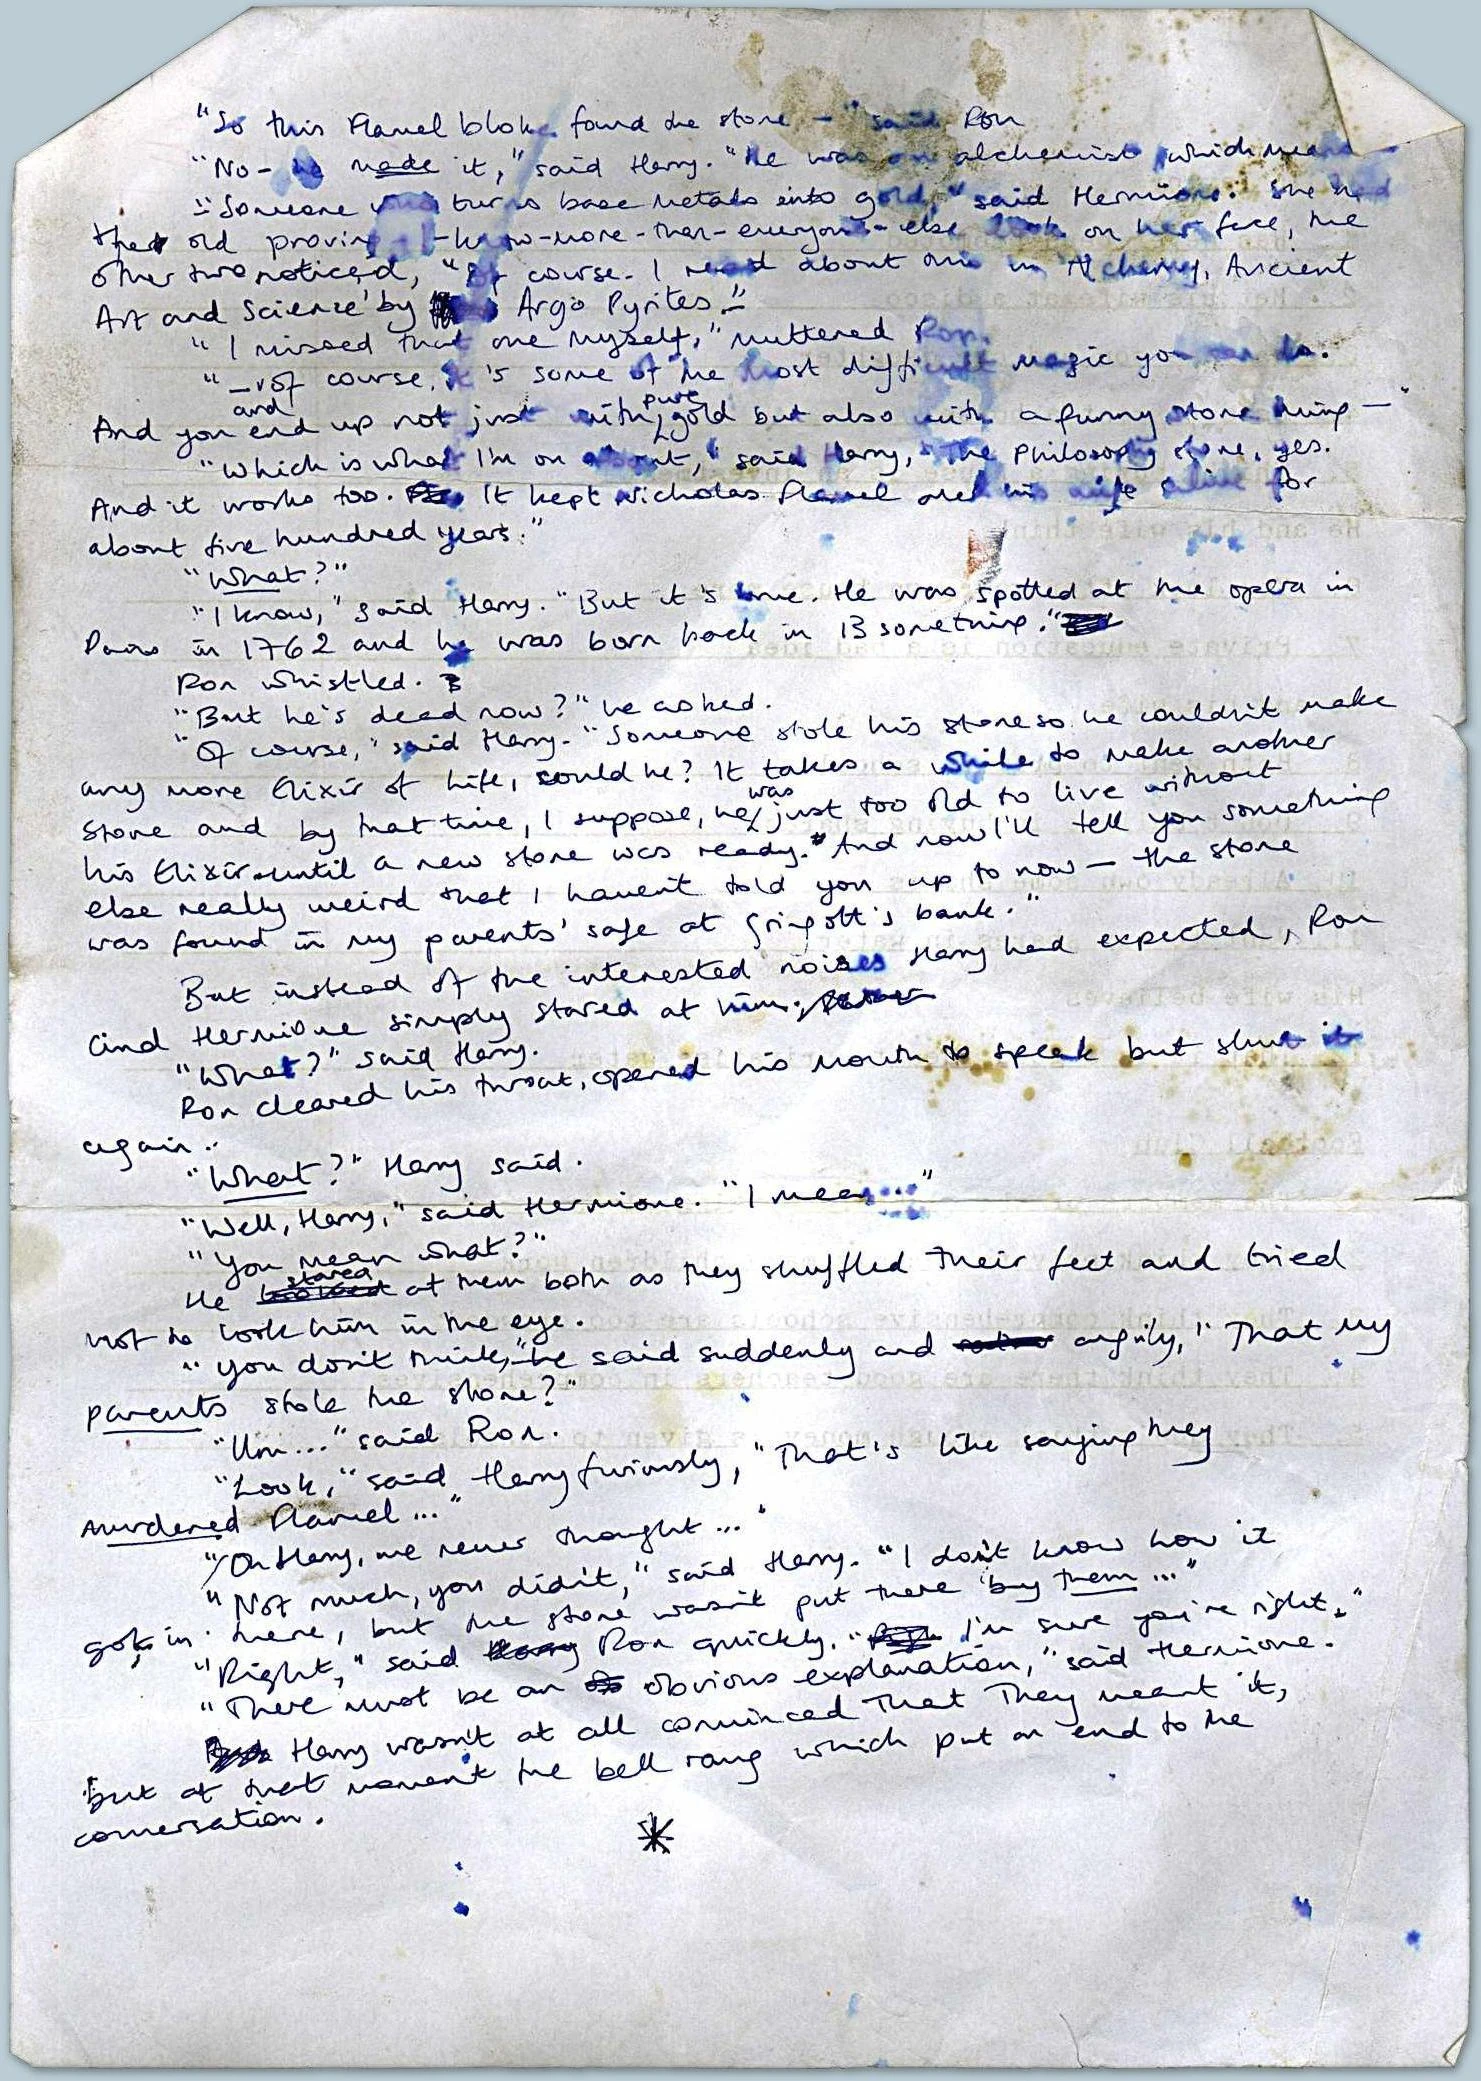 "So this Flamel bloke found the stone — " said Ron
"No - he made it," said Harry. "He was an alchemist, which means
"Someone who turns base metals into gold," said Hermione. She had
that old proving - know-more-than-everyone-else look on her face, the
other two noticed, "Of course. I read about this in 'Alchemy, Ancient
Art and Science' by Argo Pyrites."
"I missed that one myself," muttered Ron.
"— of course, it's some of the most difficult magic you can do.
And you and end up not just with pure gold but also with a funny stone thing —"
"Which is what I'm on about," said Harry, "The Philosophy stone, yes.
And it works too. It kept Nicholas Flamel and his wife alive for
about five hundred years."
"What?"
"I know," said Harry. "But it's true. He was spotted at the opera in
Paris in 1762 and he was born back in 13 something."
Ron whistled.
"But he's dead now?" he asked.
"Of course," said Harry. "Someone stole his stone so he couldn't make
any more Elixir of Life, could he? It takes a while to make another
stone and by that time, I suppose, he was just too old to live without
his Elixir until a new stone was ready. And now I'll tell you something
else really weird that I haven't told you up to now — the stone
was found in my parents' safe at Gringott's bank."
But instead of the interested noises Harry had expected, Ron
and Hermione simply stared at him.
"What?" said Harry.
Ron cleared his throat, opened his mouth to speak but shut it
again.
"What?" Harry said.
"Well, Harry," said Hermione. "I mean..."
"You mean what?"
He stared at them both as they shuffled their feet and tried
not to look him in the eye.
"You don't think," he said suddenly and angrily, "That my
parents stole the stone?"
"Um..." said Ron.
"Look," said Harry furiously, "That's like saying they
murdered Flamel..."
"Oh Harry, we never thought..."
"Not much, you didn't," said Harry. "I don't know how it
got in there, but the stone wasn't put there by them..."
"Right," said Ron quickly. "I'm sure you're right."
"There must be an obvious explanation," said Hermione.
Harry wasn't at all convinced that they meant it,
but at that moment the bell rang which put an end to the
conversation.
*